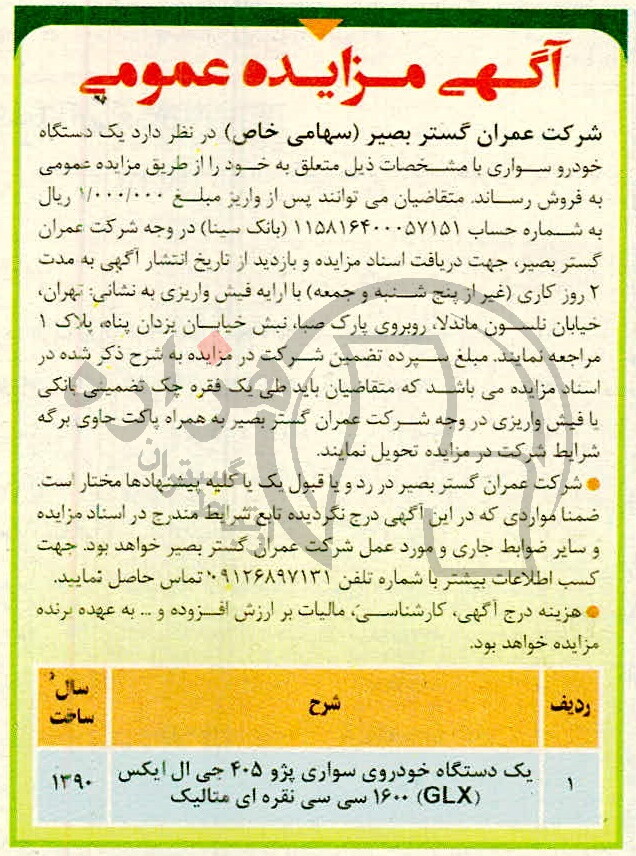 آگهی مزایده عمومی
شرکت عمران گستر بصیر (سهامی خاص) در نظر دارد یک دستگاه
خودرو سواری با مشخصات ذیل متعلق به خود را از طریق مزایده عمومی
به فروش رساند. متقاضیان می توانند پس از واریز مبلغ ۱/۰۰۰/۰۰۰ ریال
به شماره حساب ۱۱۵۸۱۶۴۰۰۰۵۷۱۵۱ (بانک سینا) در وجه شرکت عمران
گستر بصیر، جهت دریافت اسناد مزایده و بازدید از تاریخ انتشار آگهی به مدت
۲ روز کاری (غیر از پنج شنبه و جمعه) با ارایه فیش واریزی به نشانی: تهران،
خیابان نلسون ماندلا، روبروی پارک صبا، نبش خیابان یزدان پناه، پلاک ۱
مراجعه نمایند. مبلغ سپرده تضمین شرکت در مزایده به شرح ذکر شده در
اسناد مزایده می باشد که متقاضیان باید طی یک فقره چک تضمینی بانکی
یا فیش واریزی در وجه شرکت عمران گستر بصیر به همراه پاکت حاوی برگه
شرایط شرکت در مزایده تحویل نمایند.
● شرکت عمران گستر بصیر در رد و یا قبول یک یا کلیه پیشنهادها مختار است.
ضمنا مواردی که در این آگهی درج نگردیده تابع شرایط مندرج در اسناد مزایده
و سایر ضوابط جاری و مورد عمل شرکت عمران گستر بصیر خواهد بود. جهت
کسب اطلاعات بیشتر با شماره تلفن ۰۹۱۲۶۸۹۷۱۳۱ تماس حاصل نمایید.
● هزینه درج آگهی، کارشناسی، مالیات بر ارزش افزوده و ... به عهده برنده
مزایده خواهد بود.
ردیف شرح سال ساخت
۱ یک دستگاه خودروی سواری پژو ۴۰۵ جی ال ایکس ۱۳۹۰
(GLX) ۱۶۰۰ سی سی نقره ای متالیک